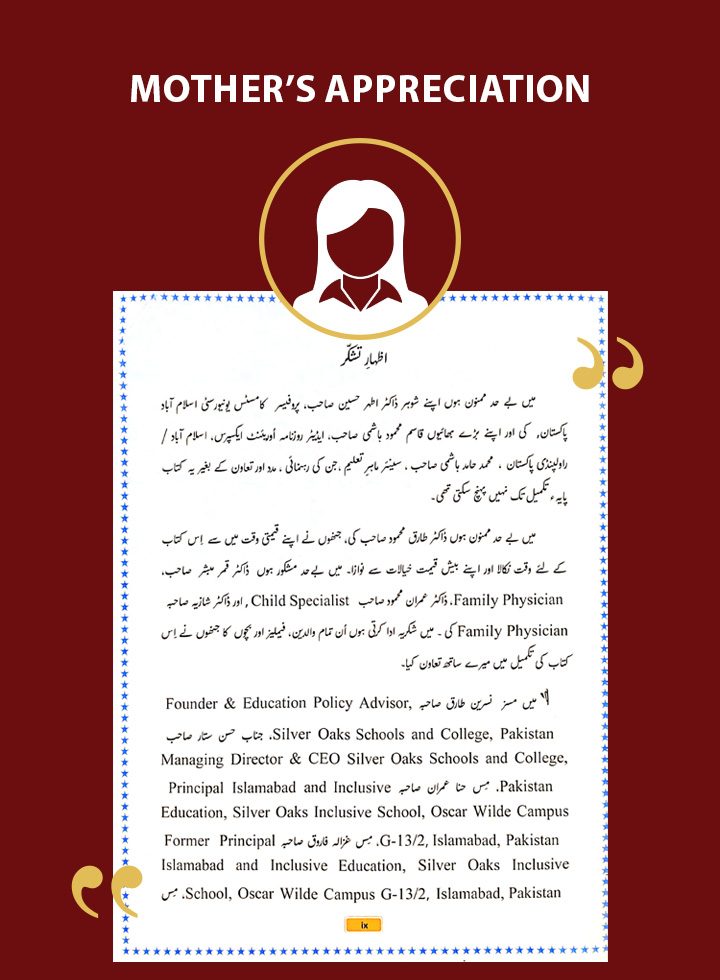 MOTHER'S APPRECIATION
اظہارِ تشکّر
میں بے حد ممنون ہوں اپنے شوہر ڈاکٹر اطہر حسین صاحب، پروفیسر کامسٹس یونیورسٹی اسلام آباد
پاکستان، کی اور اپنے بڑے بھائیوں قاسم محمود ہاشمی صاحب، ایڈیٹر روزنامہ اُورینٹ ایکسپرس، اسلام آباد /
راولپنڈی پاکستان ، محمد حامد ہاشمی صاحب ، سینئر ماہرِ تعلیم ،جن کی رہنمائی ، مدد اور تعاون کے بغیر یہ کتاب
پایہء تکمیل تک نہیں پہنچ سکتی تھی۔
میں بے حد ممنون ہوں ڈاکٹر طارق محمود صاحب کی، جنھوں نے اپنے قیمتی وقت میں سے اِس کتاب
کے لئے وقت نکالا اور اپنے بیش قیمت خیالات سے نوازا۔ میں بےحد مشکور ہوں ڈاکٹر قمر مبشر صاحب،
Family Physician، ڈاکٹر عمران محمود صاحب Child Specialist , اور ڈاکٹر شازیہ صاحبہ
Family Physician کی ۔ میں شکریہ ادا کرتی ہوں اُن تمام والدین، فیملیز اور بچّوں کا جنھوں نے اِس
کتاب کی تکمیل میں میرے ساتھ تعاون کیا۔
میں مسز نسرین طارق صاحبہ Founder & Education Policy Advisor,
Silver Oaks Schools and College, Pakistan، جناب حسن ستار صاحب
Managing Director & CEO Silver Oaks Schools and College,
Pakistan، مِس حنا عمران صاحبہ Principal Islamabad and Inclusive
Education, Silver Oaks Inclusive School, Oscar Wilde Campus
G-13/2, Islamabad, Pakistan، مِس غزالہ فاروق صاحبہ Former Principal
Islamabad and Inclusive Education, Silver Oaks Inclusive
School, Oscar Wilde Campus G-13/2, Islamabad, Pakistan، مِس
ix